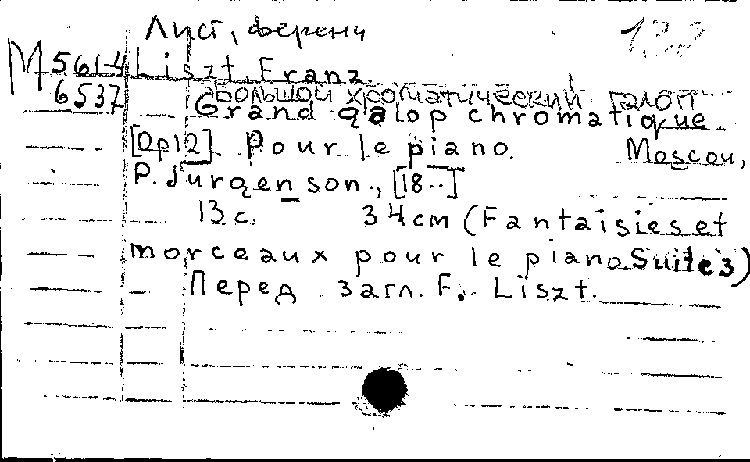 Лист, Ференц
М 561-4 Liszt, Franz
6537 Большой хроматический галоп
Grand galop chromatique
[Op12]. Pour le piano. Moscou,
P. Jurgenson., [18..]
13 с. 34 см (Fantaisies et
morceaux pour le piano. Suite 3)
Перед загл. F. Liszt.